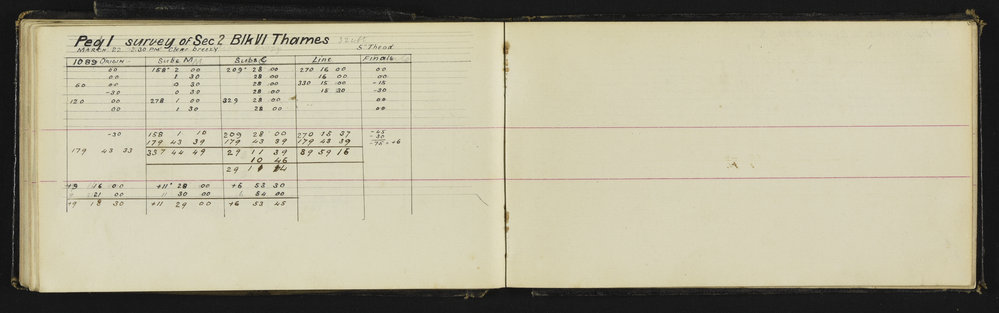 Peg 1 survey of Sec 2 Blk VI Thames
MARCH 22 2.30 PM Clear breezy 5" Thread
1089 ORIGIN Subs M Subs C Line Finals
00 158° 2 00 209° 28 00 270 16 00 00
00 1 30 28 00 16 00 00
60 00 0 30 28 00 330 15 00 -15
-30 0 30 28 00 15 30 -30
120 00 278 1 00 329 28 00 00
00 1 30 28 00 00
-30 158 1 10 209 28 00 270 15 37 -45
30
179 43 39 179 43 39 179 43 39 -75 = +6
179 43 33 337 44 49 29 11 39 89 59 16
10 46
29 1 24
+9 16 00 +11° 28 00 +6 53 30
21 00 11 30 00 6 54 00
+9 18 30 +11 29 00 +6 53 45